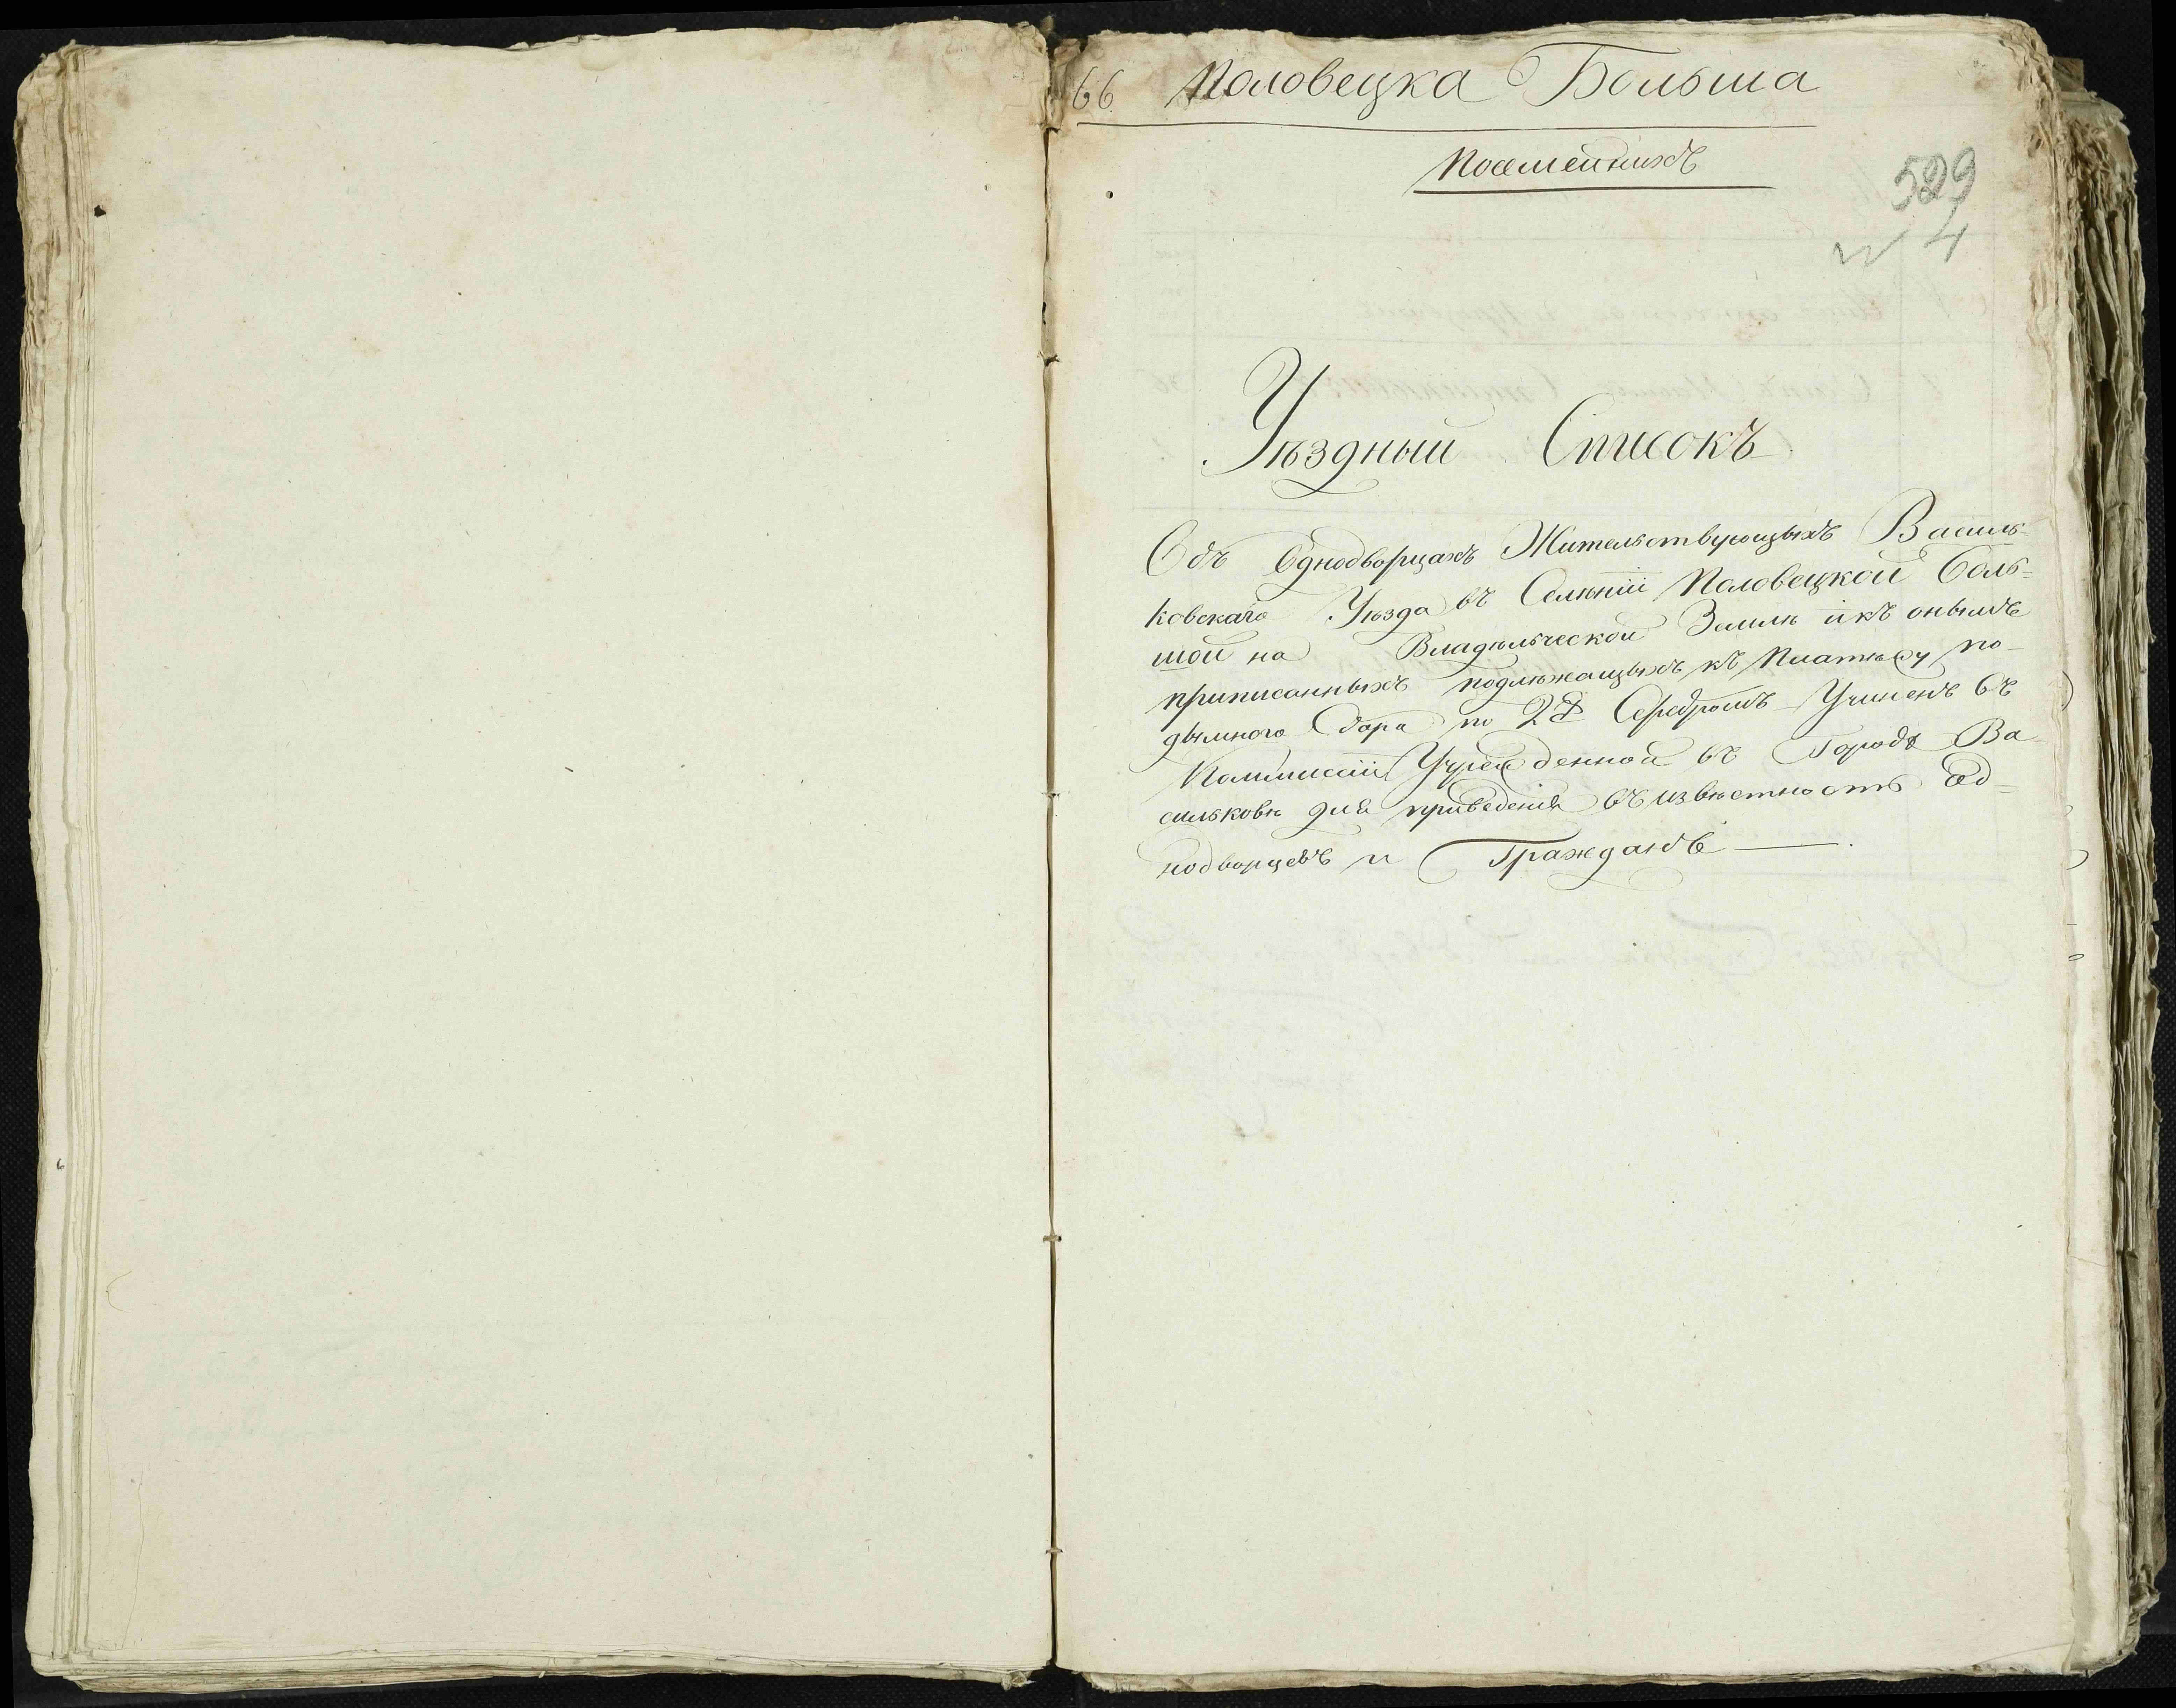 66 Половецка Больша
Посемейныхъ
529
4
Уѣздный Списокъ
Объ Однодворцахъ Жительствующыхъ Василь-
ковскаго Уѣзда въ Селѣніи Половецкой Боль=
шой на Владѣльческой Землѣ и къ онымъ
приписанныхъ подлѣжащыхъ къ Платежу по-
дымного Сбора по 2 Серебромъ Учиненъ въ
Коммиссіи Учрежденной въ Городѣ Ва-
сильковѣ для приведенія въ извѣстность Од=
нодворцевъ и Гражданъ —.